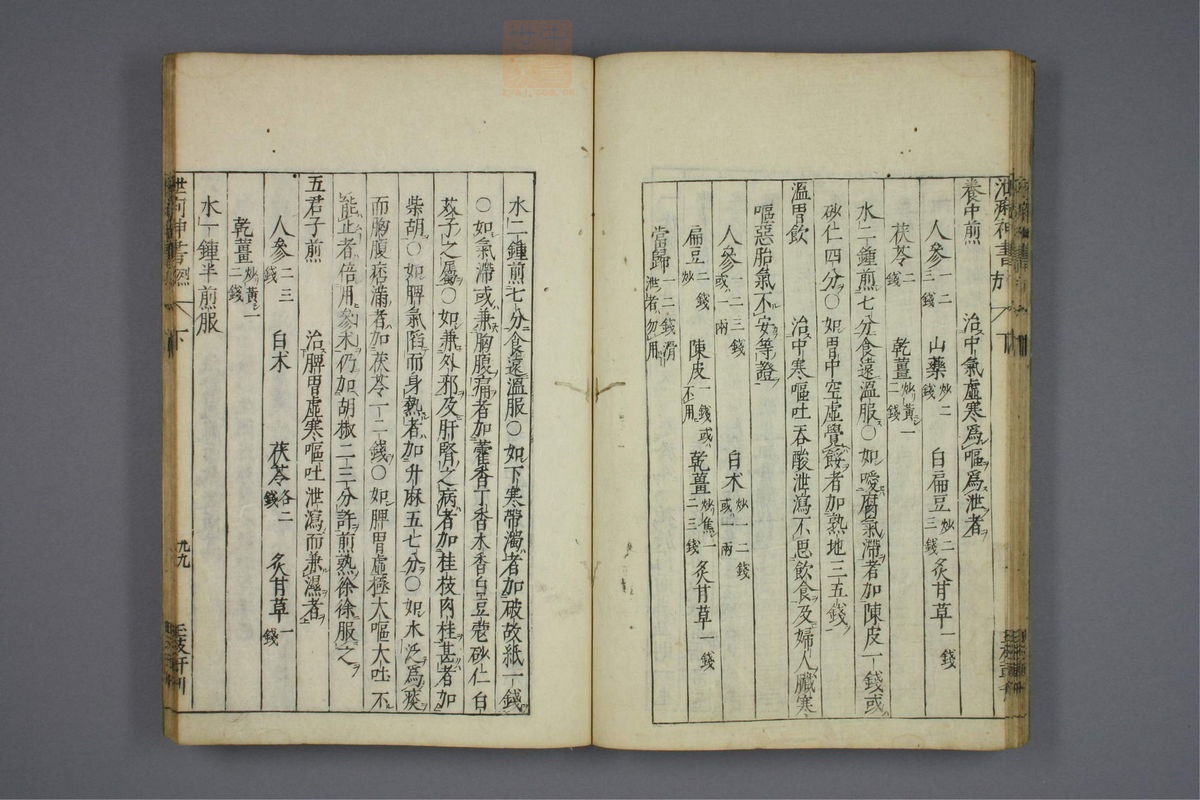 養中煎　治中氣虛寒爲嘔爲泄者
人參一二三錢　山藥炒二錢　白扁豆炒二三錢　炙甘草一錢
茯苓二錢　乾薑炒黃一二錢
水二鍾煎七分食遠溫服○如噯腐氣滯者加陳皮一錢或
砂仁四分○如胃中空虛覺餒者加熟地三五錢
溫胃飲　治中寒嘔吐吞酸泄瀉不思飲食及婦人臟寒
嘔惡胎氣不安等證
人參一二三錢或一兩　白术炒一二錢或一兩
扁豆二錢炒　陳皮一錢或不用　乾薑炒焦一二三錢　炙甘草一錢
當歸一二錢滑泄者勿用
水二鍾煎七分食遠溫服○如下寒帶濁者加破故紙一錢
○如氣滯或兼胸腹痛者加藿香丁香木香白豆蔻砂仁白
芥子之屬○如兼外邪及肝腎之病者加桂枝肉桂甚者加
柴胡○如脾氣陷而身熱者加升麻五七分○如水泛爲痰
而胸腹痞滿者加茯苓一二錢○如脾胃虛極大嘔大吐不
能止者倍用參术仍加胡椒二三分許煎熟徐徐服之
五君子煎　治脾胃虛寒嘔吐泄瀉而兼濕者
人參二三錢　白术　茯苓各二錢　炙甘草一錢
乾薑炒黃一二錢
水一鍾半煎服